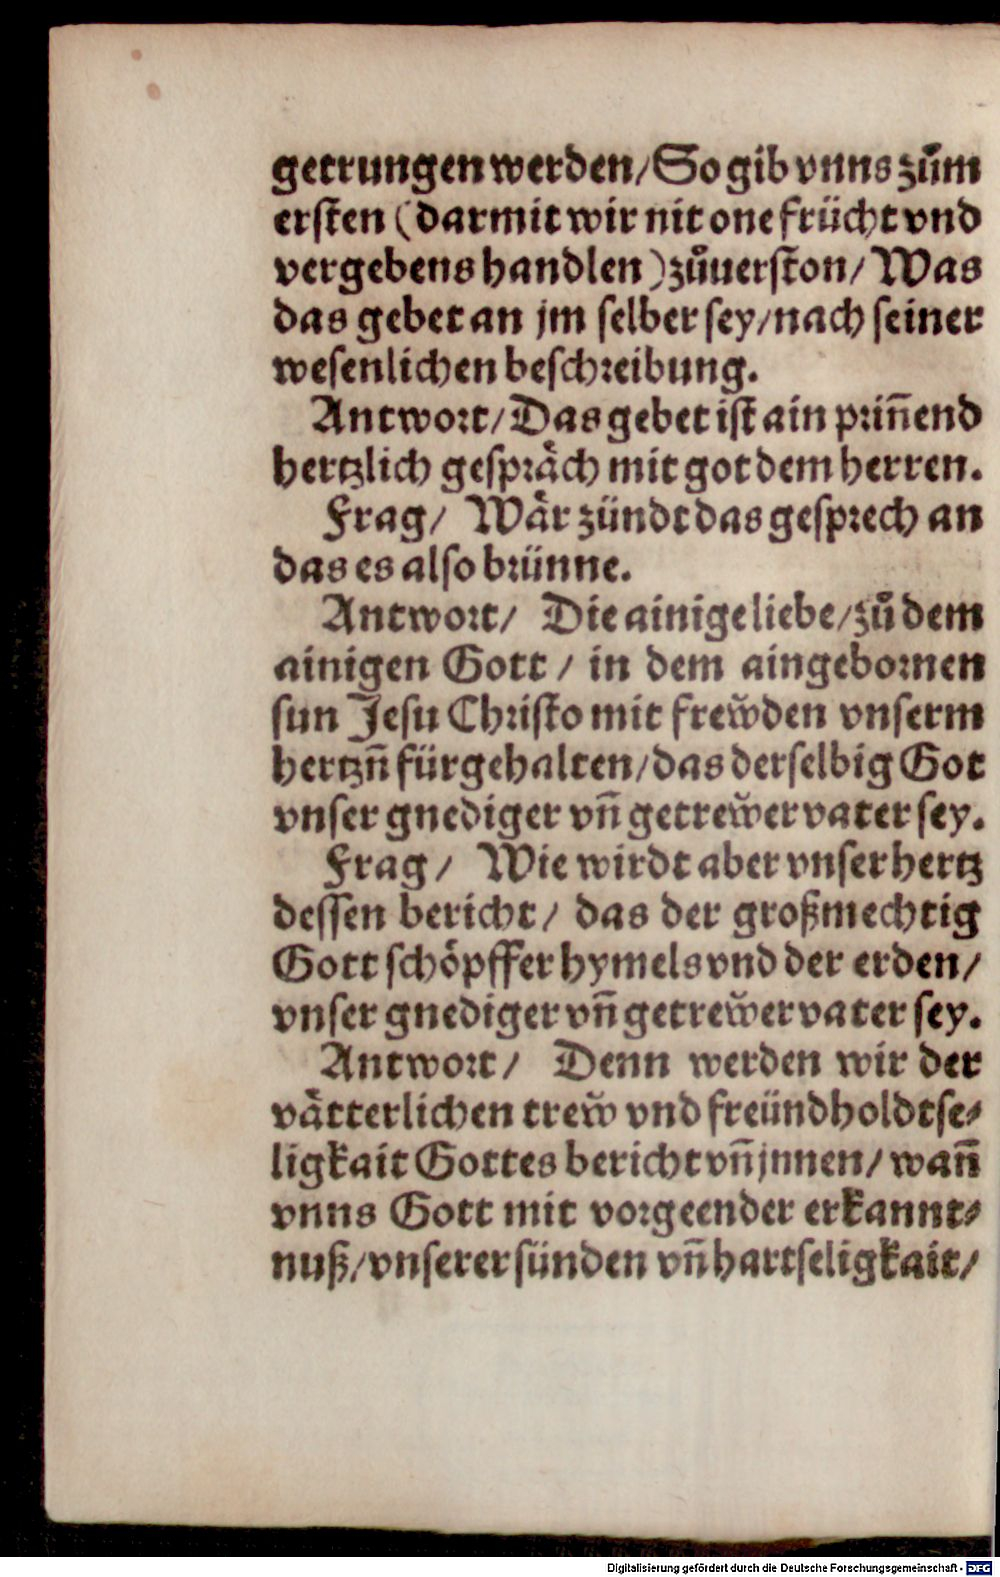 getrungen werden/ So gib vnns zům
ersten (darmit wir nit one frücht vnd
vergebens handlen) zůuerston/ Was
das gebet an jm selber sey/ nach seiner
wesenlichen beschreibung.
Antwort/ Das gebet ist ain prin̄end
hertzlich gespräch mit got dem herren.
Frag/ Wär zündt das gesprech an
das es also brünne.
Antwort/ Die ainige liebe/ zů dem
ainigen Gott / in dem aingebornen
sun Jesu Christo mit frew̆den vnserm
hertzn̄ fürgehalten/ das derselbig Got
vnser gnediger vn̄ getrew̆er vater sey.
Frag/ Wie wirdt aber vnser hertz
dessen bericht/ das der großmechtig
Gott schöpffer hymels vnd der erden/
vnser gnediger vn̄ getrew̆er vater sey.
Antwort/ Denn werden wir der
vätterlichen trew̆ vnd freündholdtse⸗
ligkait Gottes bericht vn̄ jnnen/ wan̄
vnns Gott mit vorgeender erkannt⸗
nuß/ vnserer sünden vn̄ hartseligkait/
Digitalisierung gefördert durch die Deutsche Forschungsgemeinschaft - DFG